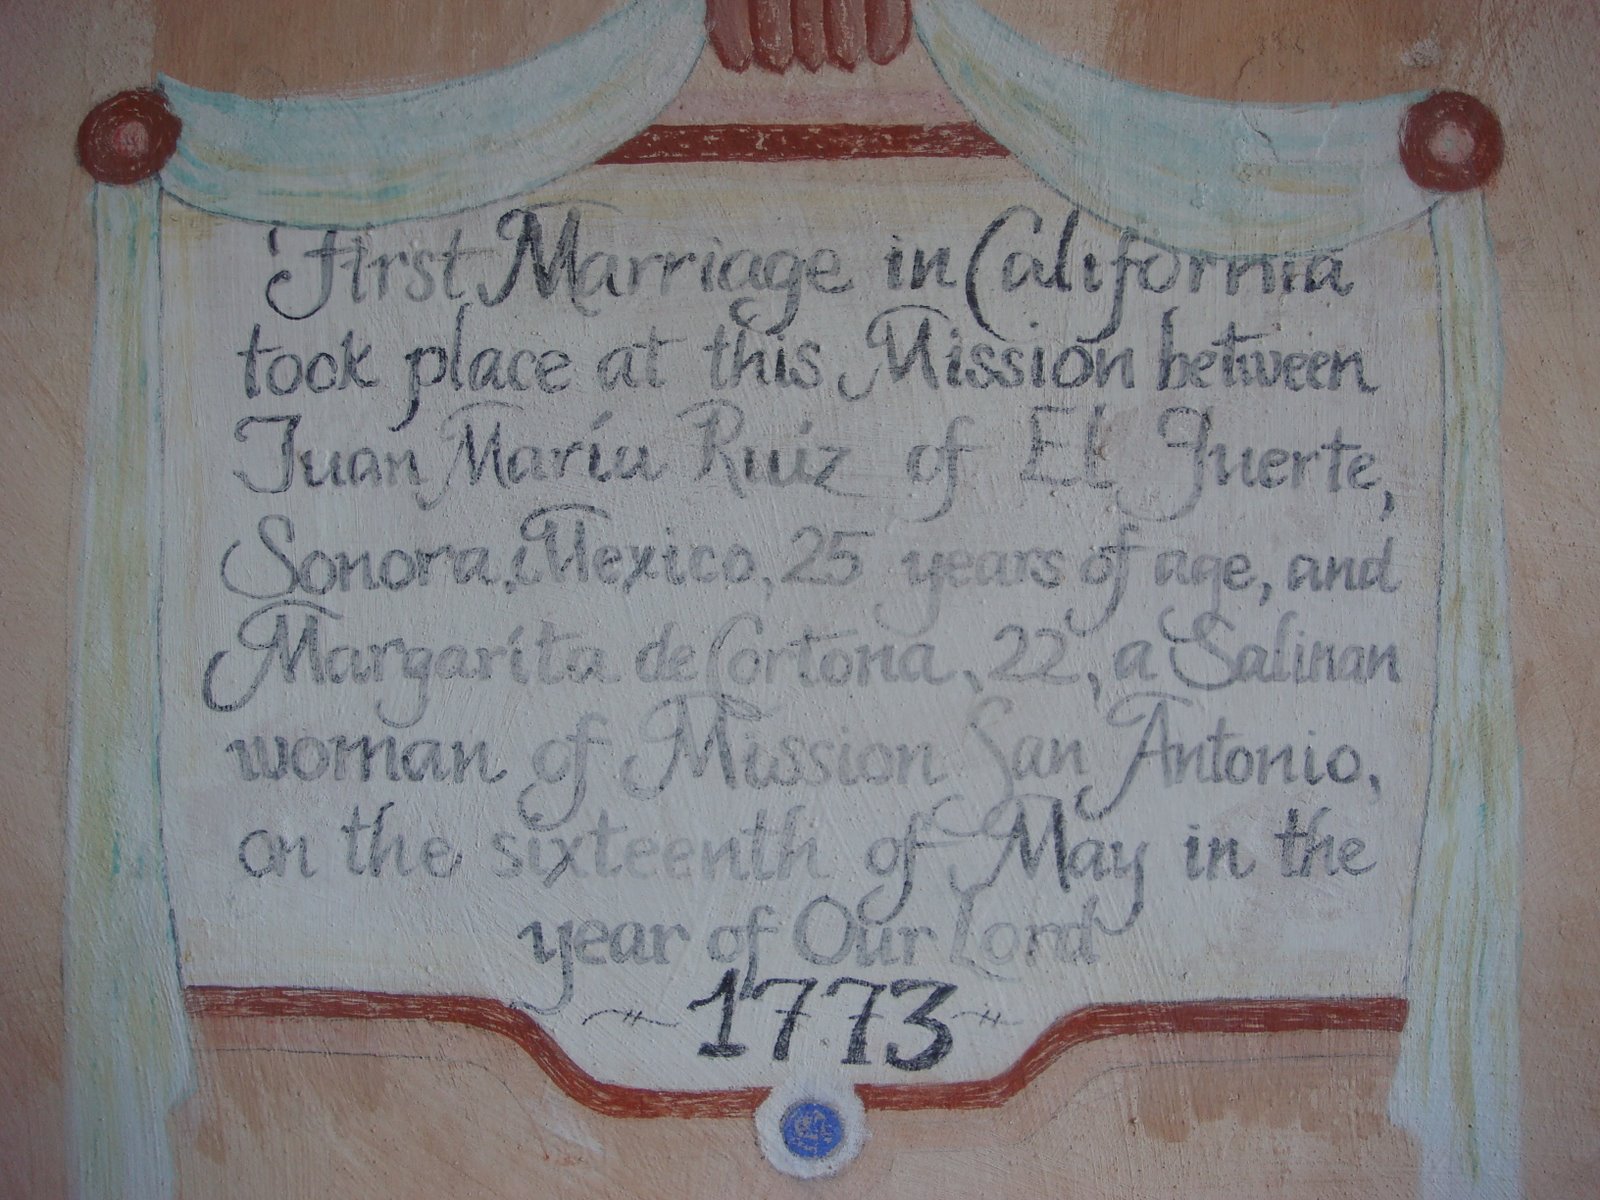 First Marriage in California
took place at this Mission between
Juan María Ruíz of El Fuerte,
Sonora, Mexico, 25 years of age, and
Margaríta de Cortona, 22, a Salinan
woman of Mission San Antonio,
on the sixteenth of May in the
year of Our Lord
1773